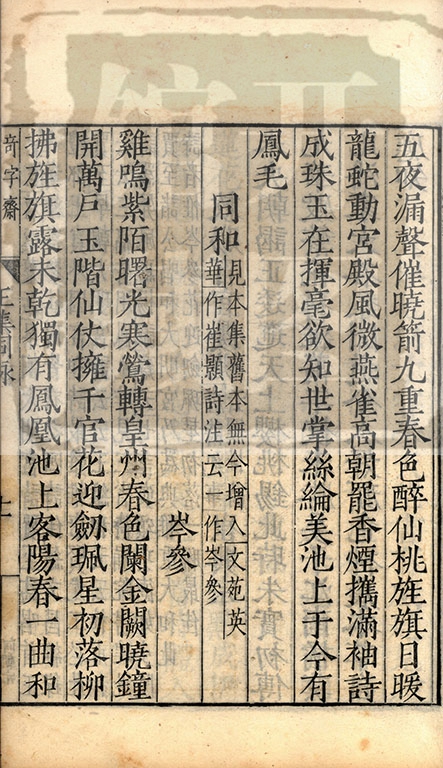 五夜漏聲催曉箭九重春色醉仙桃旌旗日暖
龍蛇動宮殿風微燕雀高朝罷香煙攜滿袖詩
成珠玉在揮毫欲知世掌絲綸美池上于今有
鳳毛
同和
見本集舊本無今增入文苑英
華作崔顥詩注云一作岑參
岑參
雞鳴紫陌曙光寒鶯轉皇州春色闌金闕曉鐘
開萬戶玉階仙仗擁千官花迎劒珮星初落柳
拂旌旗露未乾獨有鳳凰池上客陽春一曲和
奇字齋